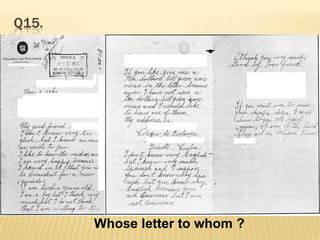 Q15.
COLEGIO DE DOLORES
My good friend
I don't know very En-
glish, but I know as much
as write to you.
I like to hear the radio, and
I am very happy, because
I heard in it, that you will
be President for a new
(periodo).
I am twelve years old.
I am a boy but I think very
much but I do not think
that I am writting to the
If you like, give me a
ten dollars bill green ame-
rican, in the letter, because
never, I have not seen a
ten dollars bill green ame-
rican and I would like
to have one of them.
My address is:
Colegio de Dolores
Oriente Cuba
I don't know very English
but I know very much
Spanish and I suppose
you don't know very Spa-
nish but you know very
English because you
are American but I am
not American.
(Thank you very much)
Good by. Your friend,
If you want iron to make
your ships I will
show to you the bigest
(minas) of iron of the land
Whose letter to whom ?